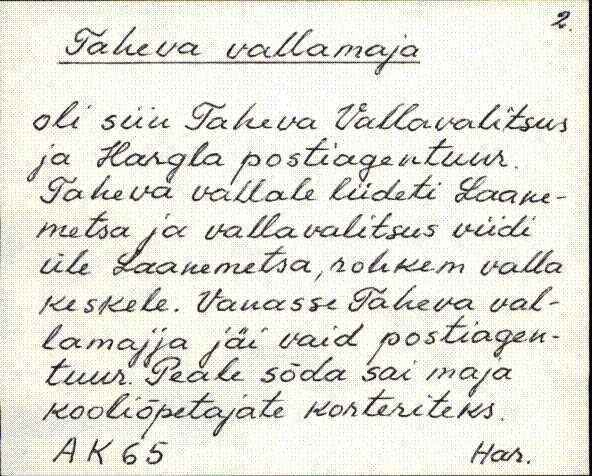 2.
Taheva vallamaja
oli siin Taheva Vallavalitsus
ja Hargla postiagentuur.
Taheva vallale liideti Laane-
metsa ja vallavalitsus viidi
üle Laanemetsa, rohkem valla
keskele. Vanasse Taheva val-
lamajja jäi vaid postiagen-
tuur. Peale sõda sai maja
kooliõpetajate korteriteks.
AK65 Har.